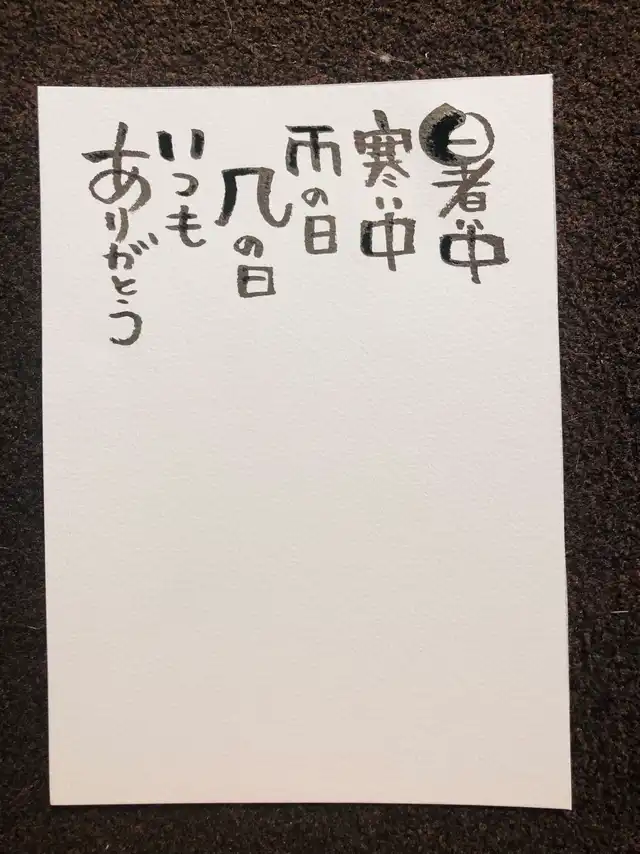 暑中
寒中
雨の日
几の日
いつも
ありがとう